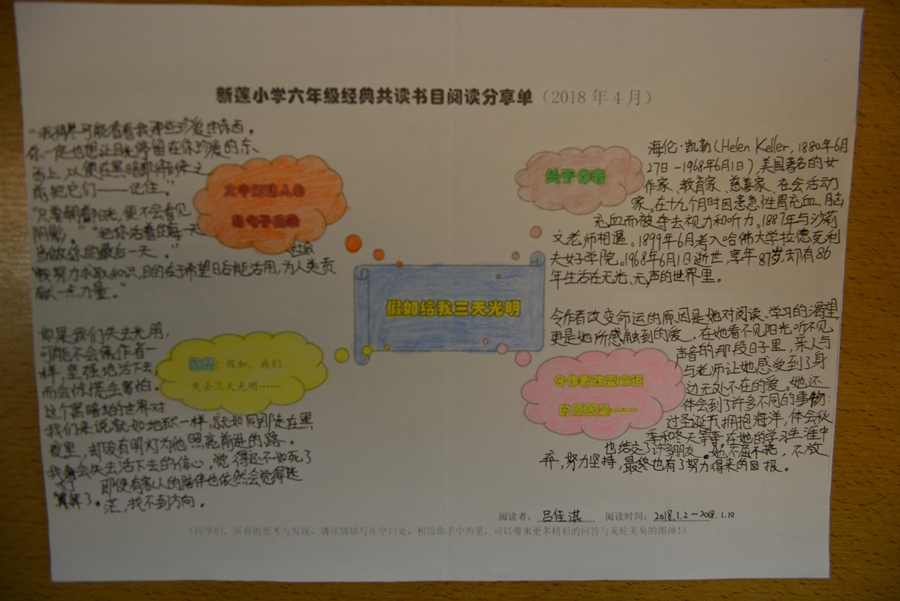 新莲小学六年级经典共读书目阅读分享单（2018年4月）
"我将尽可能看看我那些珍爱的东西，
你一定也想让目光停留在你珍爱的东
西上，以便在黑暗即将使之
前，把它们——记住。"
"只要朝着阳光，便不会看见
阴影。""把你活着的每一天
当做你的最后一天。"
我努力求取知识，目的在于希望日后能活用，为人类贡
献一点力量。"
文中
的句子摘录
关于作者
海伦·凯勒(Helen Keller，1880年6月
27日-1968年6月1日)，美国著名的女
作家、教育家、慈善家、社会活动
家。在十九个月时因患急性胃充血、脑
充血而被夺去视力和听力。1887年与沙莉
文老师相遇。1899年6月考入哈佛大学拉德克利
夫女子学院。1968年6月1日逝世，享年87岁，却有86
年生活在无光、无声的世界里。
假如给我三天光明
如果我们失去光明，
可能不会像作者一
样，坚强地活下去
而会彷徨会害怕。
这个黑暗的世界对
我们来说就如地狱一样，就如同走在黑
夜里，却没有明灯为他照亮前进的路…
我会失去活下去的信心，觉得还不如死了
算了。即便有家人的陪伴也依然会觉得迷
茫，找不到方向。
假如，我们
失去三天光明……
令作者改变命运的原因是她对阅读、学习的渴望
更是她所感触到的爱，在她看不见阳光，听不见
声音的那段日子里，亲人与
老师让她感受到了身
边无处不在的爱。她还
体会到了许多不同的事物：
过圣诞节、拥抱海洋，体会秋
季和冬天等等，在她的学习生涯中
也结交了许多朋友。她不屈不挠，不放
弃，努力坚持，最终也有了努力得来的回报。
令作者改变命运
的原因是——
阅读者：吕佳淇 阅读时间：2018.1.2－2018.1.10
（同学们，所有的思考与发现，请尽情填写在空白处，相信你手中的笔，可以带来更多精彩的回答与美轮美奂的图画！）